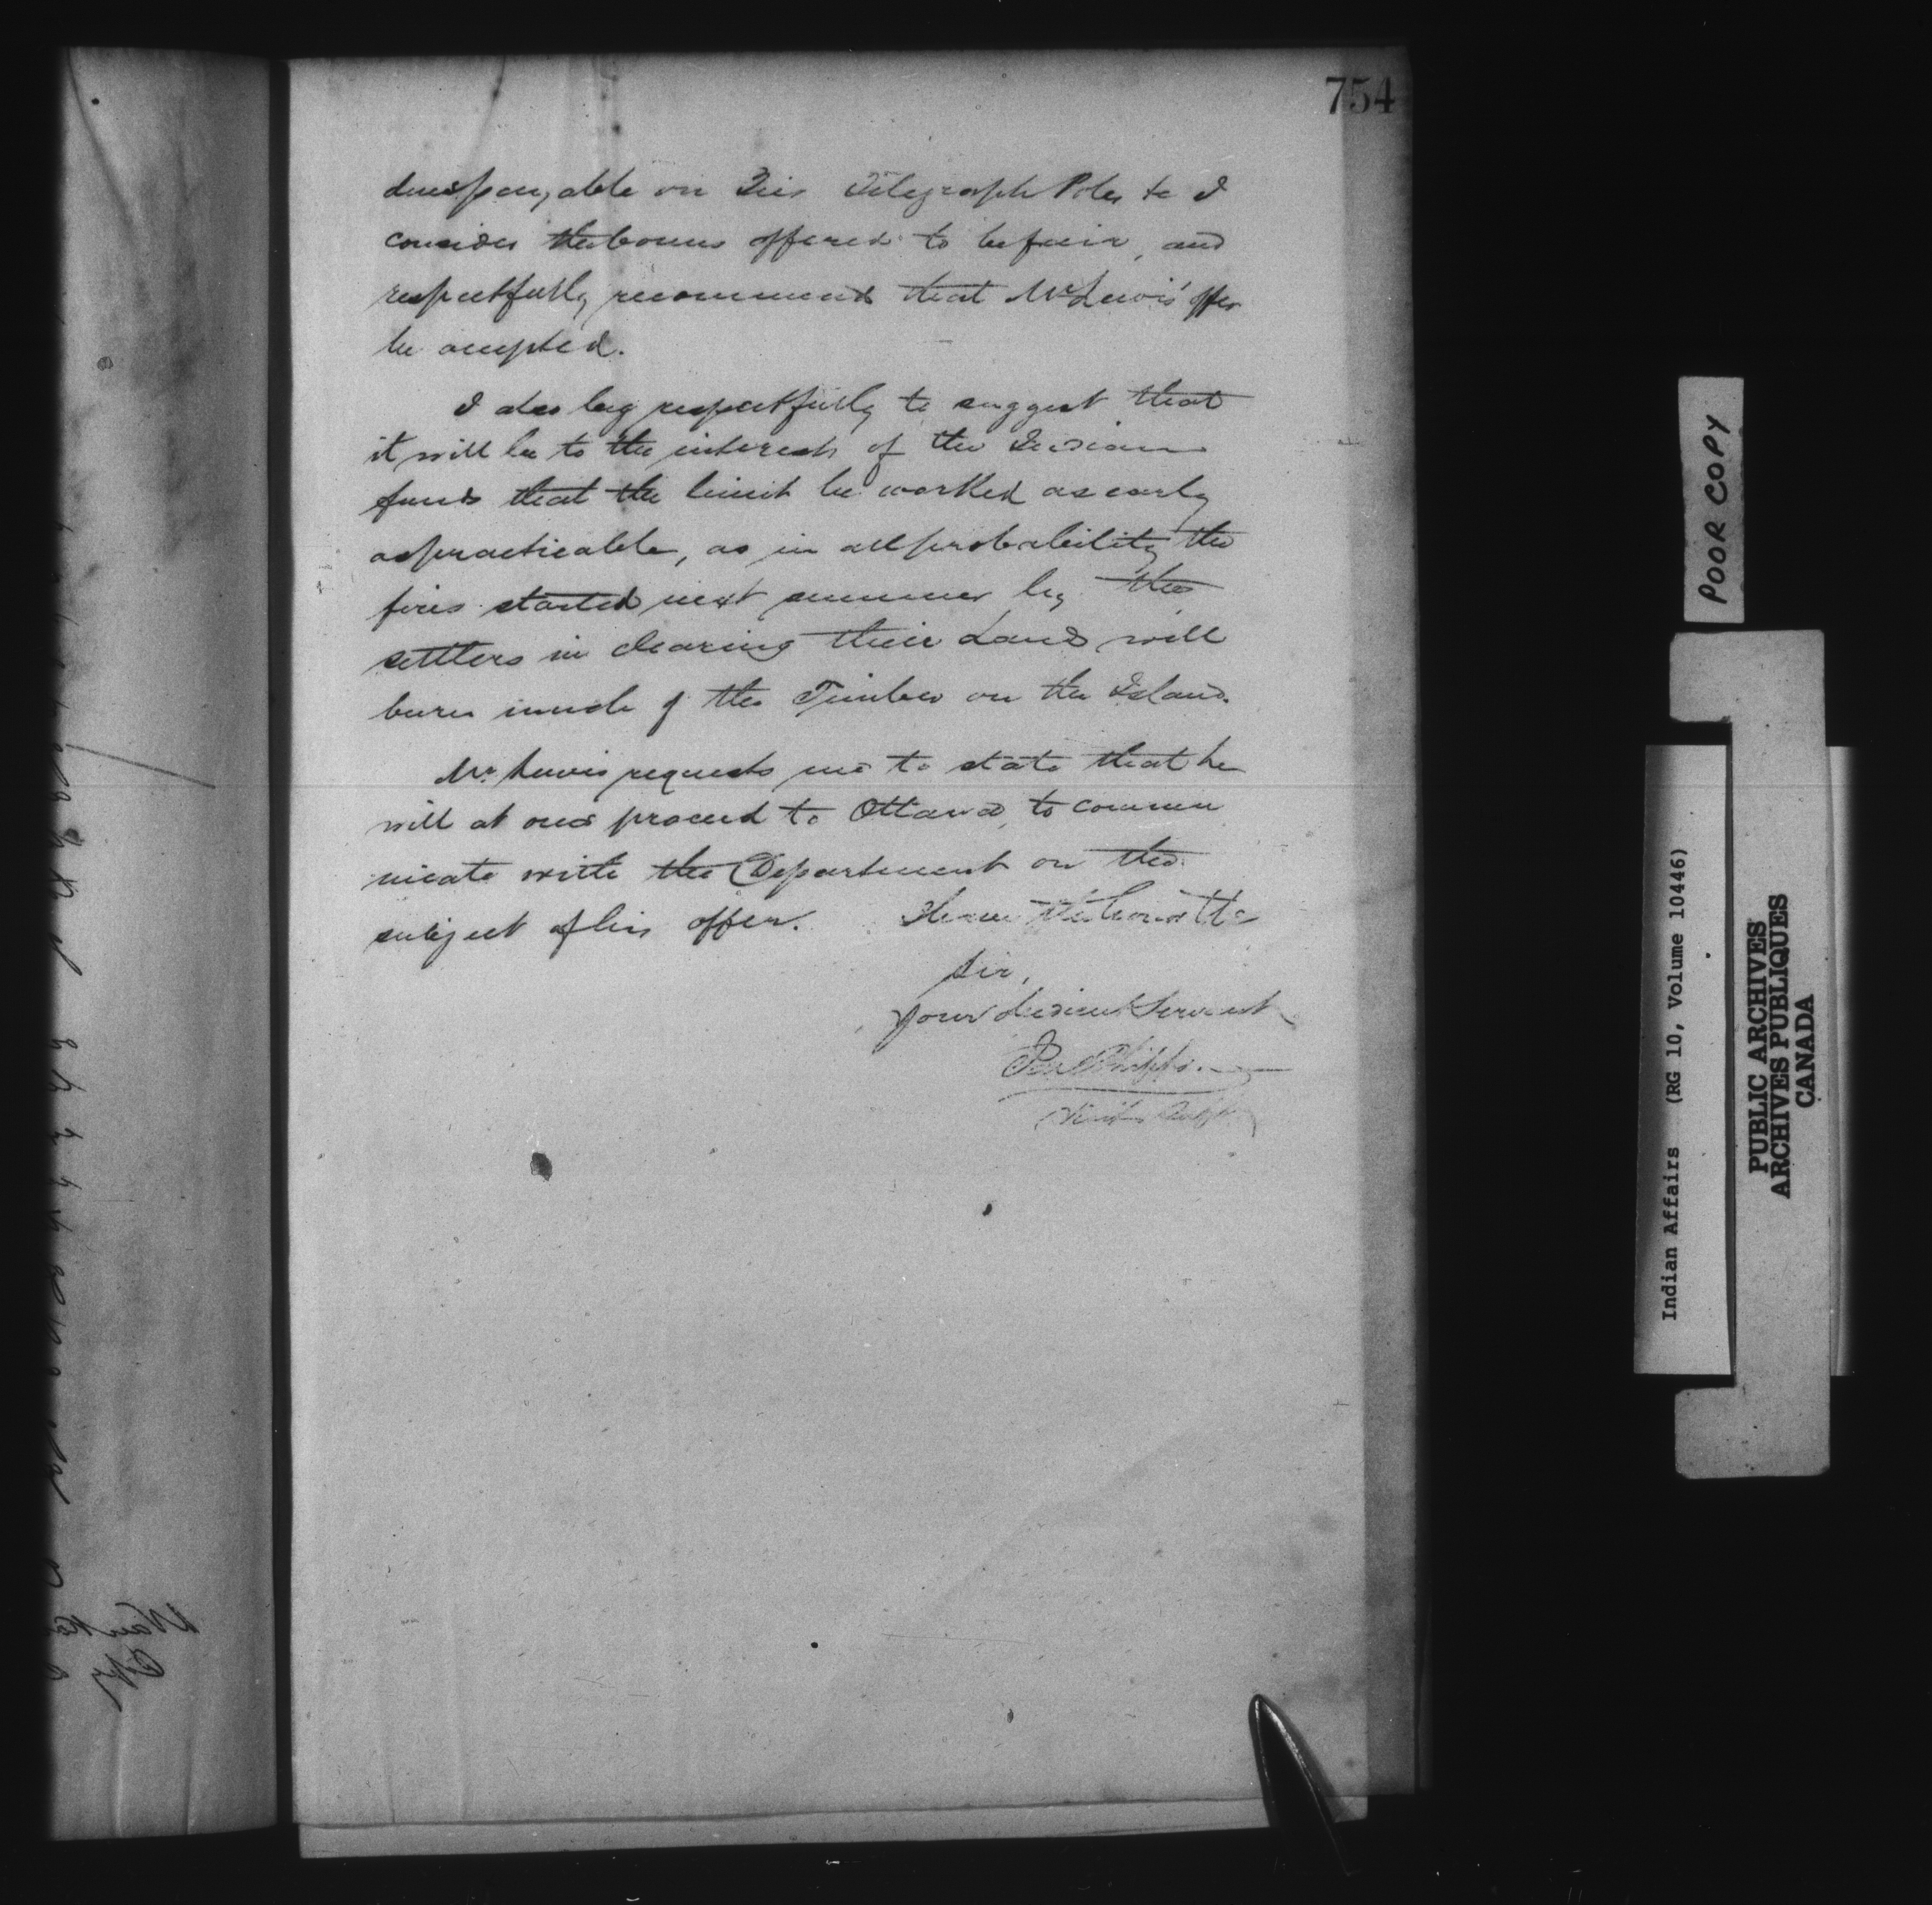 754
dues payable on Ties Telegraph Poles &c I
consider the bonus offered to be fair, and
respectfully recommend that Mr Lewis' offer
be accepted.
I also beg respectfully to suggest that
it will be to the interests of the Indian
funds that the limit be worked as early
as practicable, as in all probability the
fires started next summer by the
settlers in clearing their Land will
burn much of the Timber on the Island.
Mr Lewis requests me to state that he
will at once proceed to Ottawa, to commu
nicate with the Department on the
subject of his offer. I have the honor to be
Sir,
your obedient Servant
Jas Phipps.
Visiting Supt
POOR COPY
Indian Affairs (RG 10, Volume 10446)
PUBLIC ARCHIVES
ARCHIVES PUBLIQUES
CANADA